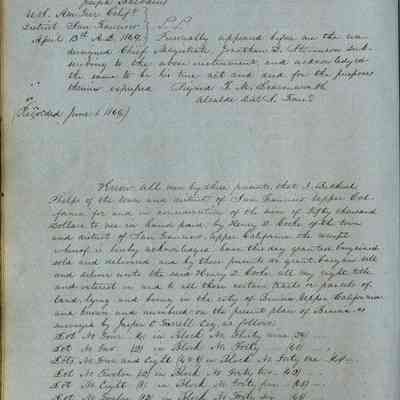 Joseph
U.S. Am Ter Calfa
District San Francisco } S.S.
April 13th A.D. 1849. Personally appeared before me the un
dersigned Chief Magistrate Jonathan D. Stevenson sub
scribing to the above instrument and acknowledged
the same to be his true act and deed for the purposes
therein expressed Signed T. M. Leavenworth
Alcalde Dist S. Fran
(Recorded June 1849)
Know all men by these presents, that I
Phelps of the town and district of San Francisco Upper Cal
ifornia for and in consideration of the sum of fifty thousand
Dollars to me in hand paid, by Henry D. Cooke of the town
and district of San Francisco, Upper California the receipt
whereof is hereby acknowledged have this day granted bargained
sold and delivered and by these presents do grant bargain sell
and deliver unto the said Henry D. Cooke all my right title
and interest in and to all those certain tracts or parcels of
land, lying and being in the city of Benicia Upper California
and known and numbered on the present plan of Benicia as
surveyed by Jasper O'Farrell Esq. as follows:
Lot No Four (4) in Block No Thirty nine 39)
Lot No Two (2) in Block No Forty (40)
Lots No Four and Eight (4 & 8) in Block No Forty one
Lot No Twelve 12) in Block No Forty two 42)
Lot No Eight (8) in Block No Forty five (45)
Lot No Twelve (12) in Block No Forty six 46